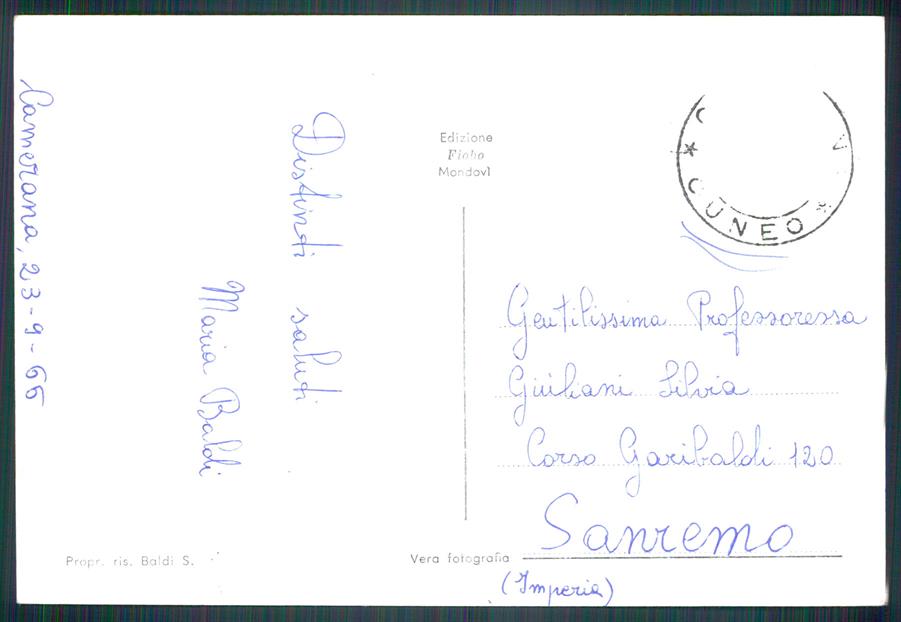 Camerana, 23-9-66
Distinti saluti
Maria Baldi
Edizione
Fiobo
Mondovì
CUNEO
Gentilissima Professoressa
Giuliani Silvia
Corso Garibaldi 120
Sanremo
(Imperia)
Propr. ris. Baldi S.
Vera fotografia